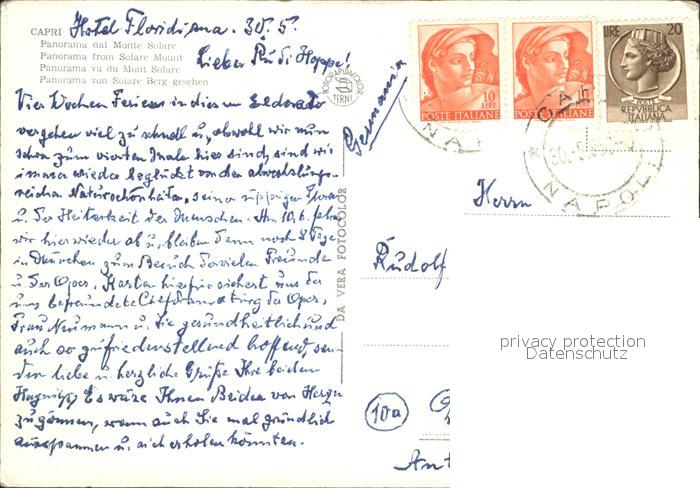 Hotel Floridiana. 30.5.
CAPRI
Panorama dal Monte Solare
Panorama from Solare Mount
Panorama vu du Mont Solare
Panorama von Solare Berg gesehen
Lieber Rudi Hoppe!
Vier Wochen Ferien in diesem Eldorado
vergehen viel zu schnell u, obwohl wir nun
schon zum vierten Male hier sind, sind wir
immer wieder beglückt von den abwechslungs-
reichen Naturschönheiten, seiner üppigen Flora
u. der Heiterkeit der Menschen. Am 10.6. fahren
wir hier wieder ab u, bleiben dann noch 8 Tage
in München zum Besuch der vielen Freunde
u. der Oper. Karten hierfür sichert uns die
uns befreundete Chefdramaturg der Oper,
Frau Neumann u. Sie gesundheitlich und
auch so zufriedenstellend hoffend, sen-
den liebe u. herzliche Grüße Ihre beiden
Es wäre Ihnen Beiden von Herzen
zu gönnen, wenn auch Sie mal gründlich
ausspannen u. sich erholen könnten.
FOTORAPIDACOLOR
TERNI
DA VERA FOTOCOLOR
Germania
10
LIRE
POSTE ITALIANE
POSTE ITALIANE
LIRE 20
POSTE
REPVBBLICA
ITALIANA
CAPRI
NAPOLI
Herrn
Rudolf
10a
privacy protection
Datenschutz